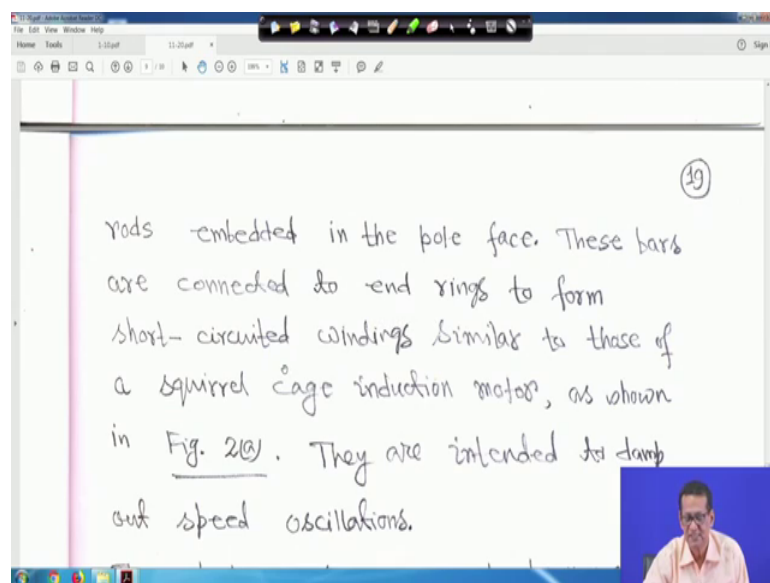 11-20.pdf - Adobe Acrobat Reader DC
File Edit View Window Help
Home Tools 1-10.pdf 11-20.pdf × Sign
19
rods embedded in the pole face. These bars
are connected to end rings to form
short-circuited windings similar to those of
a squirrel cage induction motor, as shown
in Fig. 2(a). They are intended to damp
out speed oscillations.